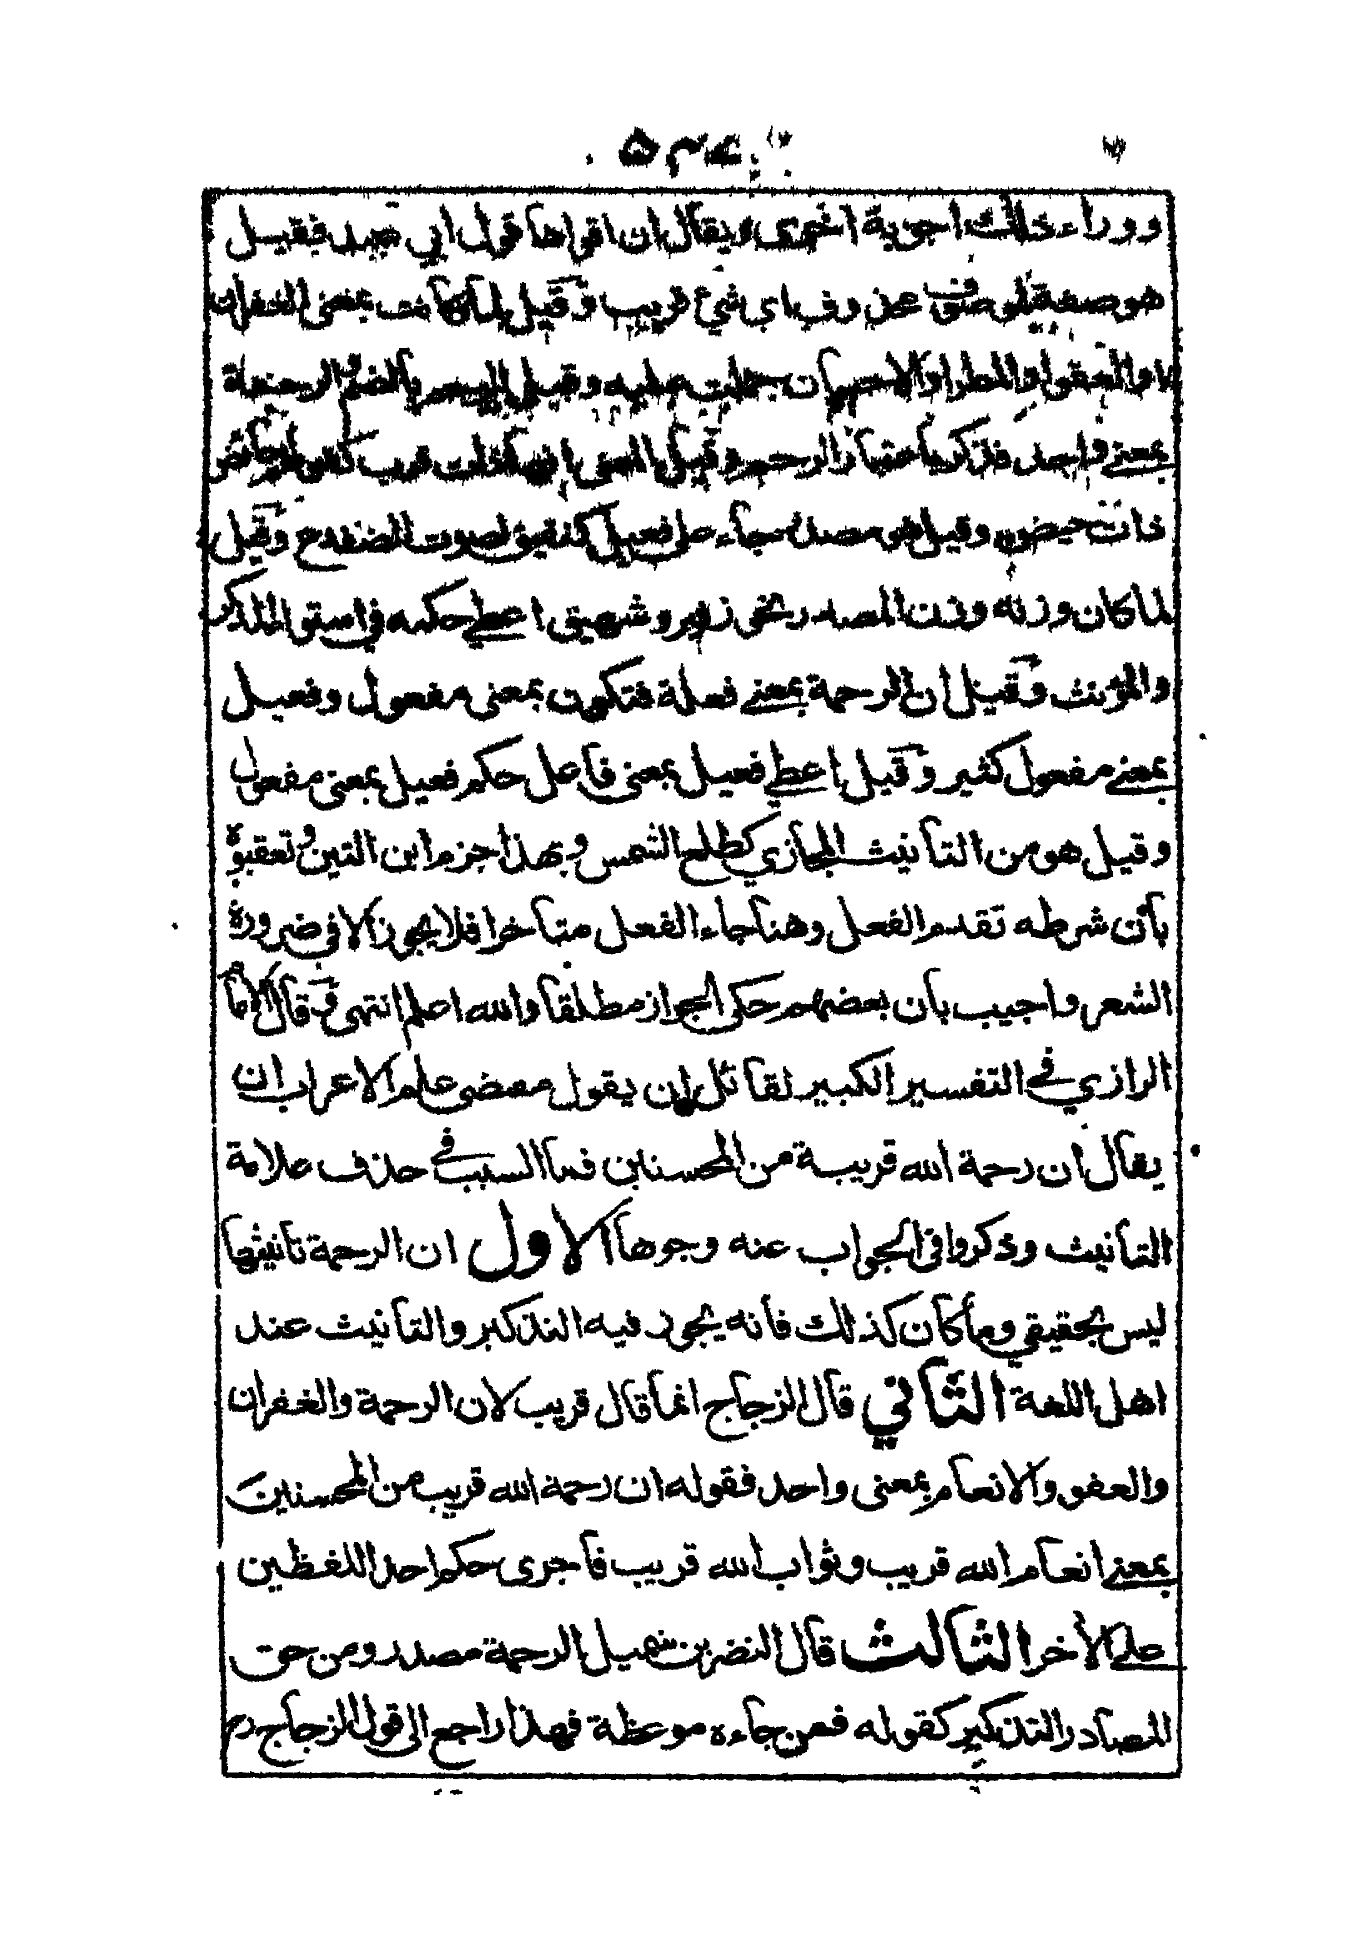 ووراء ذلك اجوبة اخرى ويقال ان اقواها قول ابي عبيد فقيل
هو صفة لموصوف محذوف اي شيء قريب وقيل لما كانت بمعنى الغفران
او العفو او المطر او الاحسان حملت عليه وقيل الرحم بالضم والرحمة
بمعنى واحد فذكر باعتبار الرحم وقيل المعنى انها ذات قرب كقولهم حائض
ذات حيض وقيل هو مصدر جاء على فعيل كنقيق لصوت الضفدع وقيل
لما كان وزنه وزن المصدر نحو زفير وشهيق اعطي حكمه في استواء المذكر
والمؤنث وقيل ان الرحمة بمعنى فعلة فتكون بمعنى مفعول وفعيل
بمعنى مفعول كثير وقيل اعطي فعيل بمعنى فاعل حكم فعيل بمعنى مفعول
وقيل هو من التأنيث المجازي كطلع الشمس وبهذا جزم ابن التين وتعقبوه
بأن شرطه تقدم الفعل وهنا جاء الفعل متأخرا فلا يجوز الا في ضرورة
الشعر واجيب بان بعضهم حكى الجواز مطلقا والله اعلم انتهى وقال الامام
الرازي في التفسير الكبير لقائل ان يقول مقتضى علم الاعراب ان
يقال ان رحمة الله قريبة من المحسنين فما السبب في حذف علامة
التأنيث وذكروا في الجواب عنه وجوها الاول ان الرحمة تانيثها
ليس بحقيقي وما كان كذلك فانه يجوز فيه التذكير والتأنيث عند
اهل اللغة الثاني قال الزجاج انما قال قريب لان الرحمة والغفران
والعفو والانعام بمعنى واحد فقوله ان رحمة الله قريب من المحسنين
بمعنى انعام الله قريب وثواب الله قريب فاجرى حكم احد اللفظين
على الأخر الثالث قال النضر بن شميل الرحمة مصدر ومن حق
المصادر التذكير كقوله فمن جاءه موعظة فهذا راجع الى قول الزجاج رم